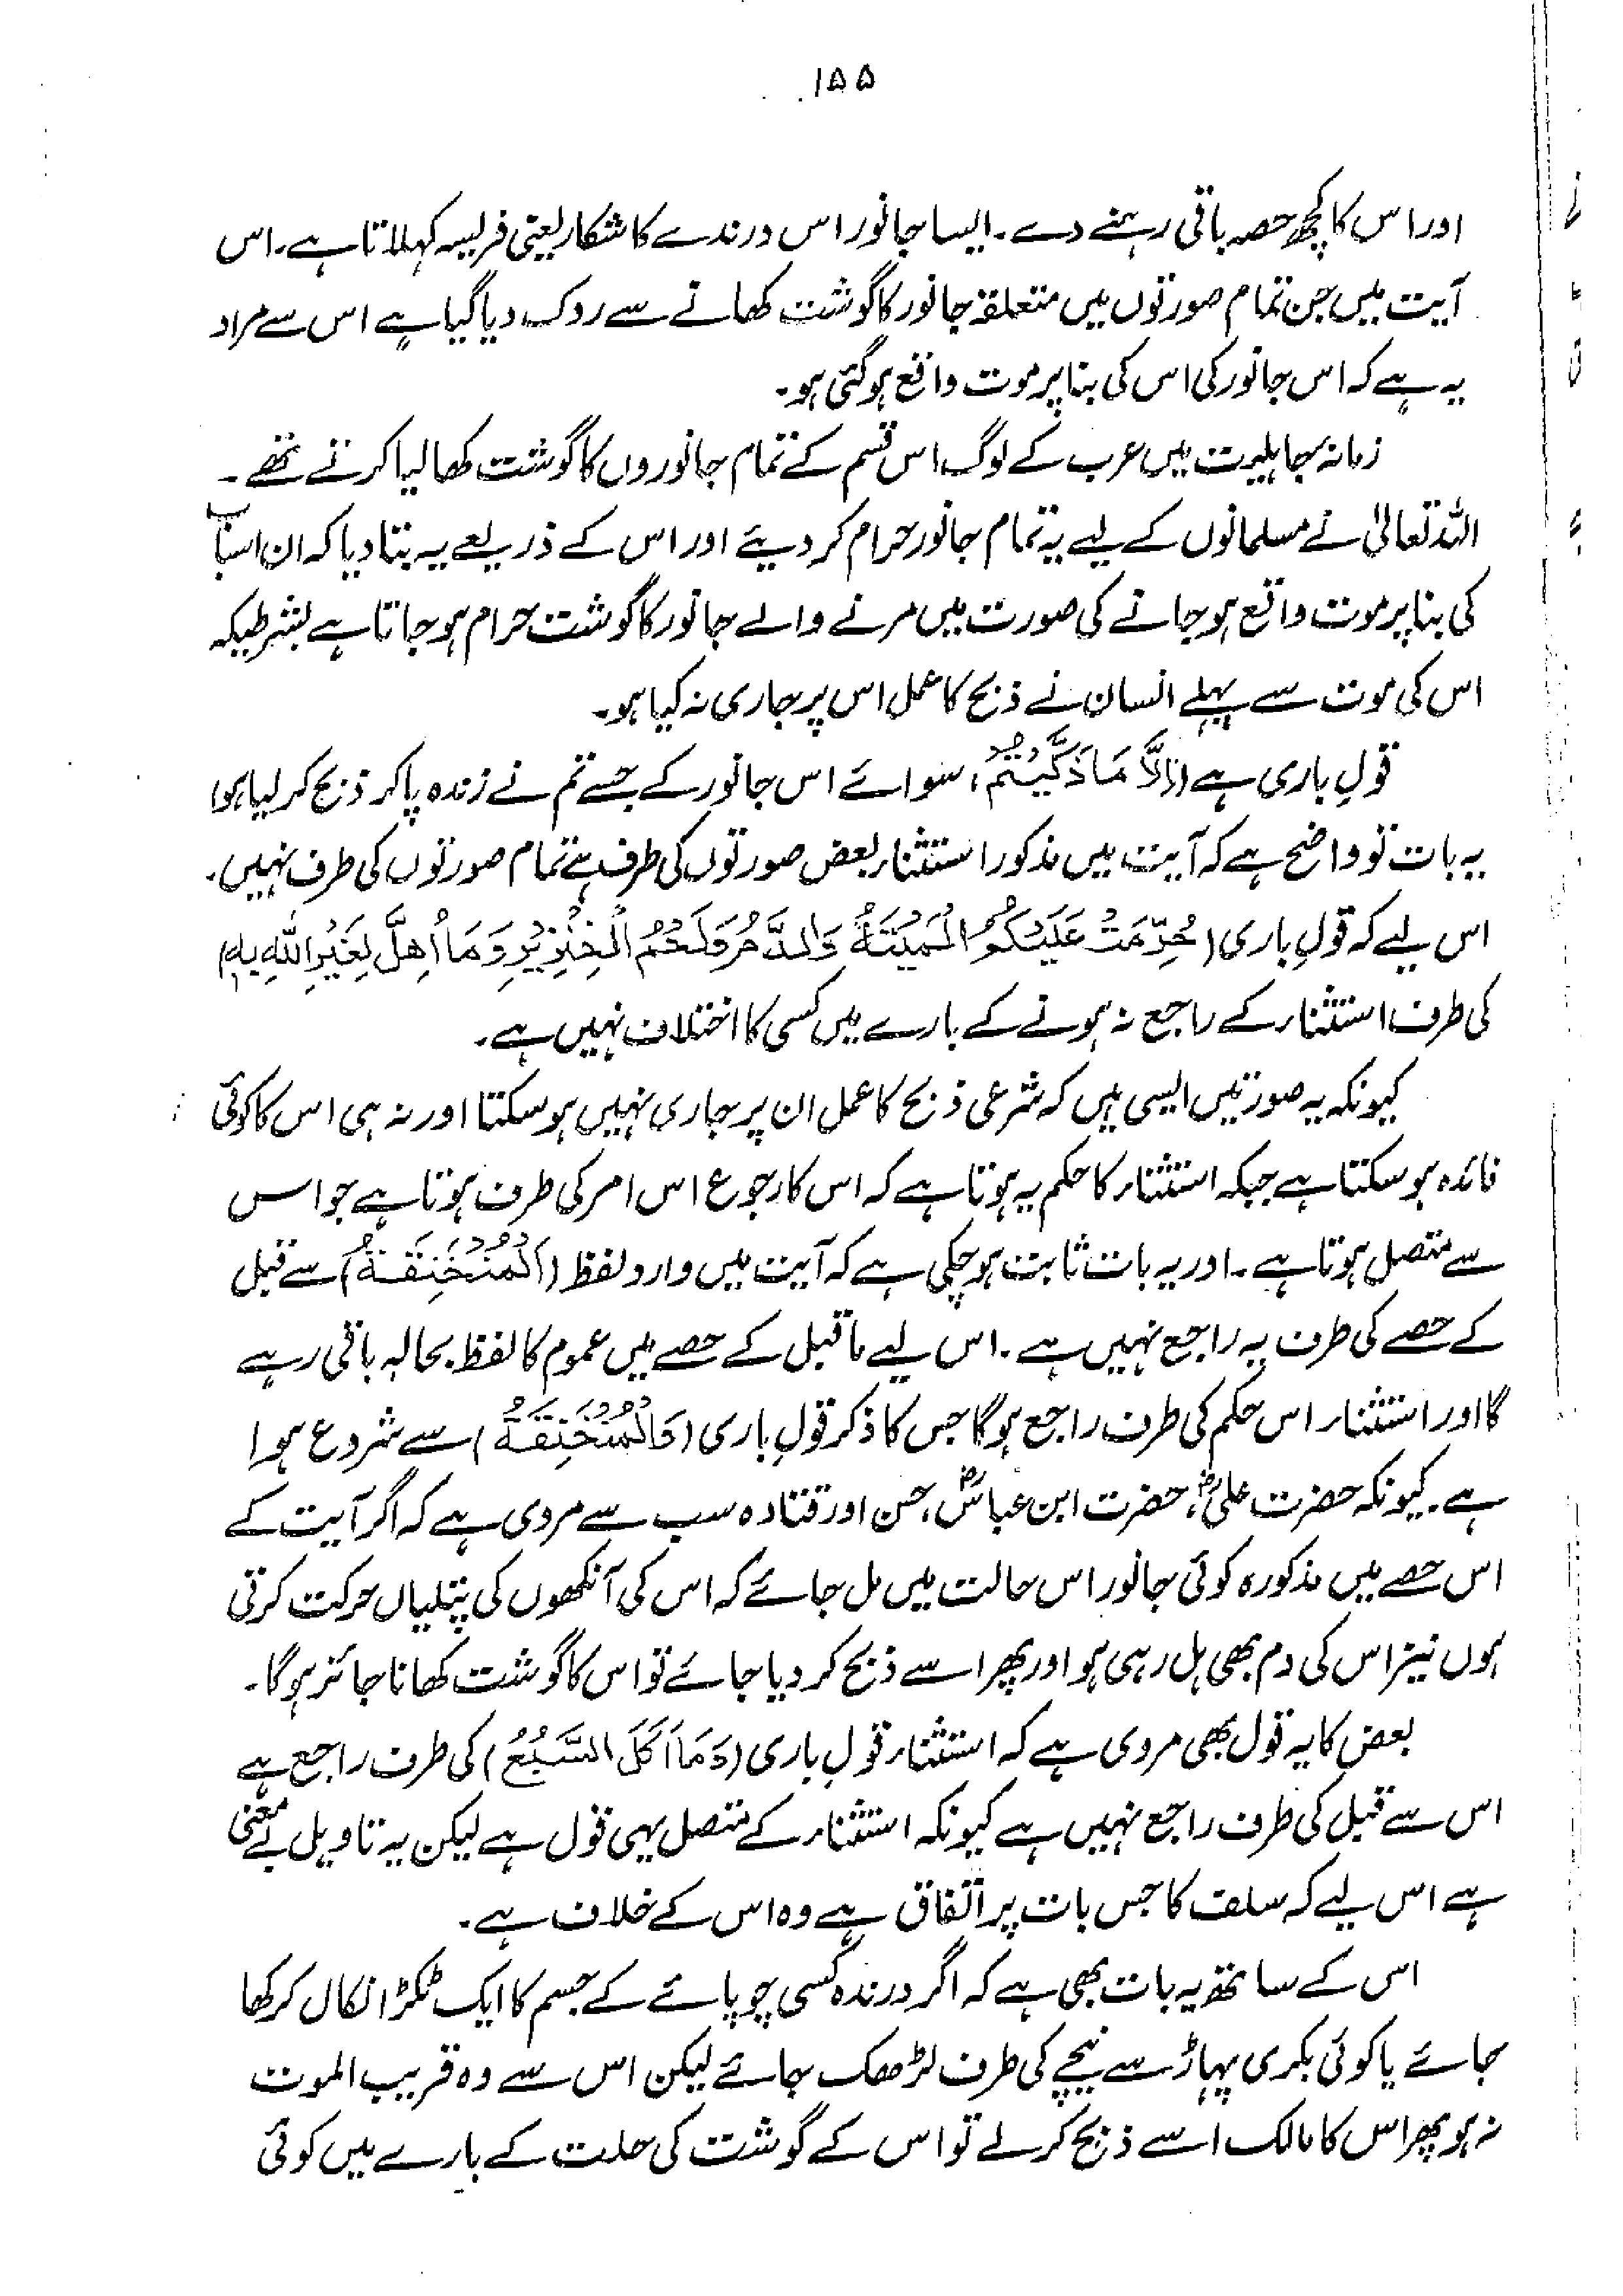 ۱۵۵
اور اس کا کچھ حصہ باقی رہنے دے۔ ایسا جانور اس درندے کا شکار یعنی فریسہ کہلاتا ہے۔ اس
آیت میں جن تمام صورتوں میں متعلقہ جانور کا گوشت کھانے سے روک دیا گیا ہے اس سے مراد
یہ ہے کہ اس جانور کی اس کی بنا پر موت واقع ہوگئی ہو۔
زمانۂ جاہلیت میں عرب کے لوگ اس قسم کے تمام جانوروں کا گوشت کھا لیا کرتے تھے۔
اللہ تعالیٰ نے مسلمانوں کے لیے یہ تمام جانور حرام کر دیئے اور اس کے ذریعے یہ بتا دیا کہ ان اسباب
کی بنا پر موت واقع ہو جانے کی صورت میں مرنے والے جانور کا گوشت حرام ہو جاتا ہے بشرطیکہ
اس کی موت سے پہلے انسان نے ذبح کا عمل اس پر جاری نہ کیا ہو۔
قولِ باری ہے (اِلَّا مَا ذَكَّيْتُمْ، سوائے اس جانور کے جسے تم نے زندہ پاکر ذبح کر لیا ہو)
یہ بات تو واضح ہے کہ آیت میں مذکور استثنار بعض صورتوں کی طرف ہے تمام صورتوں کی طرف نہیں۔
اس لیے کہ قولِ باری (حُرِّمَتْ عَلَيْكُمُ الْمَيْتَةُ وَالدَّمُ وَلَحْمُ الْخِنْزِيْرِ وَمَا اُهِلَّ لِغَيْرِ اللهِ بِهٖ)
کی طرف استثنار کے راجع نہ ہونے کے بارے میں کسی کا اختلاف نہیں ہے۔
کیونکہ یہ صورتیں ایسی ہیں کہ شرعی ذبح کا عمل ان پر جاری نہیں ہو سکتا اور نہ ہی اس کا کوئی
فائدہ ہو سکتا ہے جبکہ استثنار کا حکم یہ ہوتا ہے کہ اس کا رجوع اس امر کی طرف ہوتا ہے جو اس
سے متصل ہوتا ہے۔ اور یہ بات ثابت ہوچکی ہے کہ آیت میں وارد لفظ (اَلْمُنْخَنِقَةُ) سے قبل
کے حصے کی طرف یہ راجع نہیں ہے۔ اس لیے ماقبل کے حصے میں عموم کا لفظ بحالہ باقی رہے
گا اور استثنار اس حکم کی طرف راجع ہوگا جس کا ذکر قولِ باری (وَالْمُنْخَنِقَةُ) سے شروع ہوا
ہے۔ کیونکہ حضرت علیؓ، حضرت ابن عباسؓ، حسن اور قتادہ سب سے مروی ہے کہ اگر آیت کے
اس حصے میں مذکورہ کوئی جانور اس حالت میں مل جائے کہ اس کی آنکھوں کی پتلیاں حرکت کرتی
ہوں نیز اس کی دم بھی ہل رہی ہو اور پھر اسے ذبح کر دیا جائے تو اس کا گوشت کھانا جائز ہوگا۔
بعض کا یہ قول بھی مروی ہے کہ استثنار قولِ باری (وَمَا اَكَلَ السَّبُعُ) کی طرف راجع ہے
اس سے قبل کی طرف راجع نہیں ہے کیونکہ استثنار کے متصل یہی قول ہے لیکن یہ تاویل بے معنی
ہے اس لیے کہ سلف کا جس بات پر اتفاق ہے وہ اس کے خلاف ہے۔
اس کے ساتھ یہ بات بھی ہے کہ اگر درندہ کسی چوپائے کے جسم کا ایک ٹکڑا نکال کر کھا
جائے یا کوئی بکری پہاڑ سے نیچے کی طرف لڑھک جائے لیکن اس سے وہ قریب الموت
نہ ہو پھر اس کا مالک اسے ذبح کرلے تو اس کے گوشت کی حلت کے بارے میں کوئی